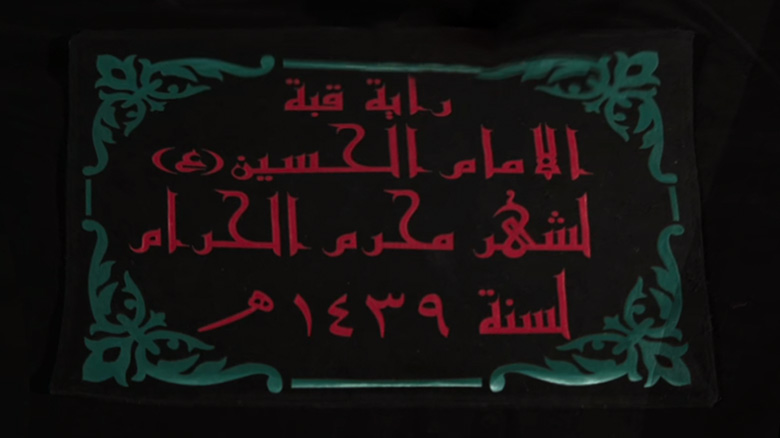 راية قبة
الامام الحسين (ع)
لشهر محرم الحرام
لسنة ١٤٣٩ هـ